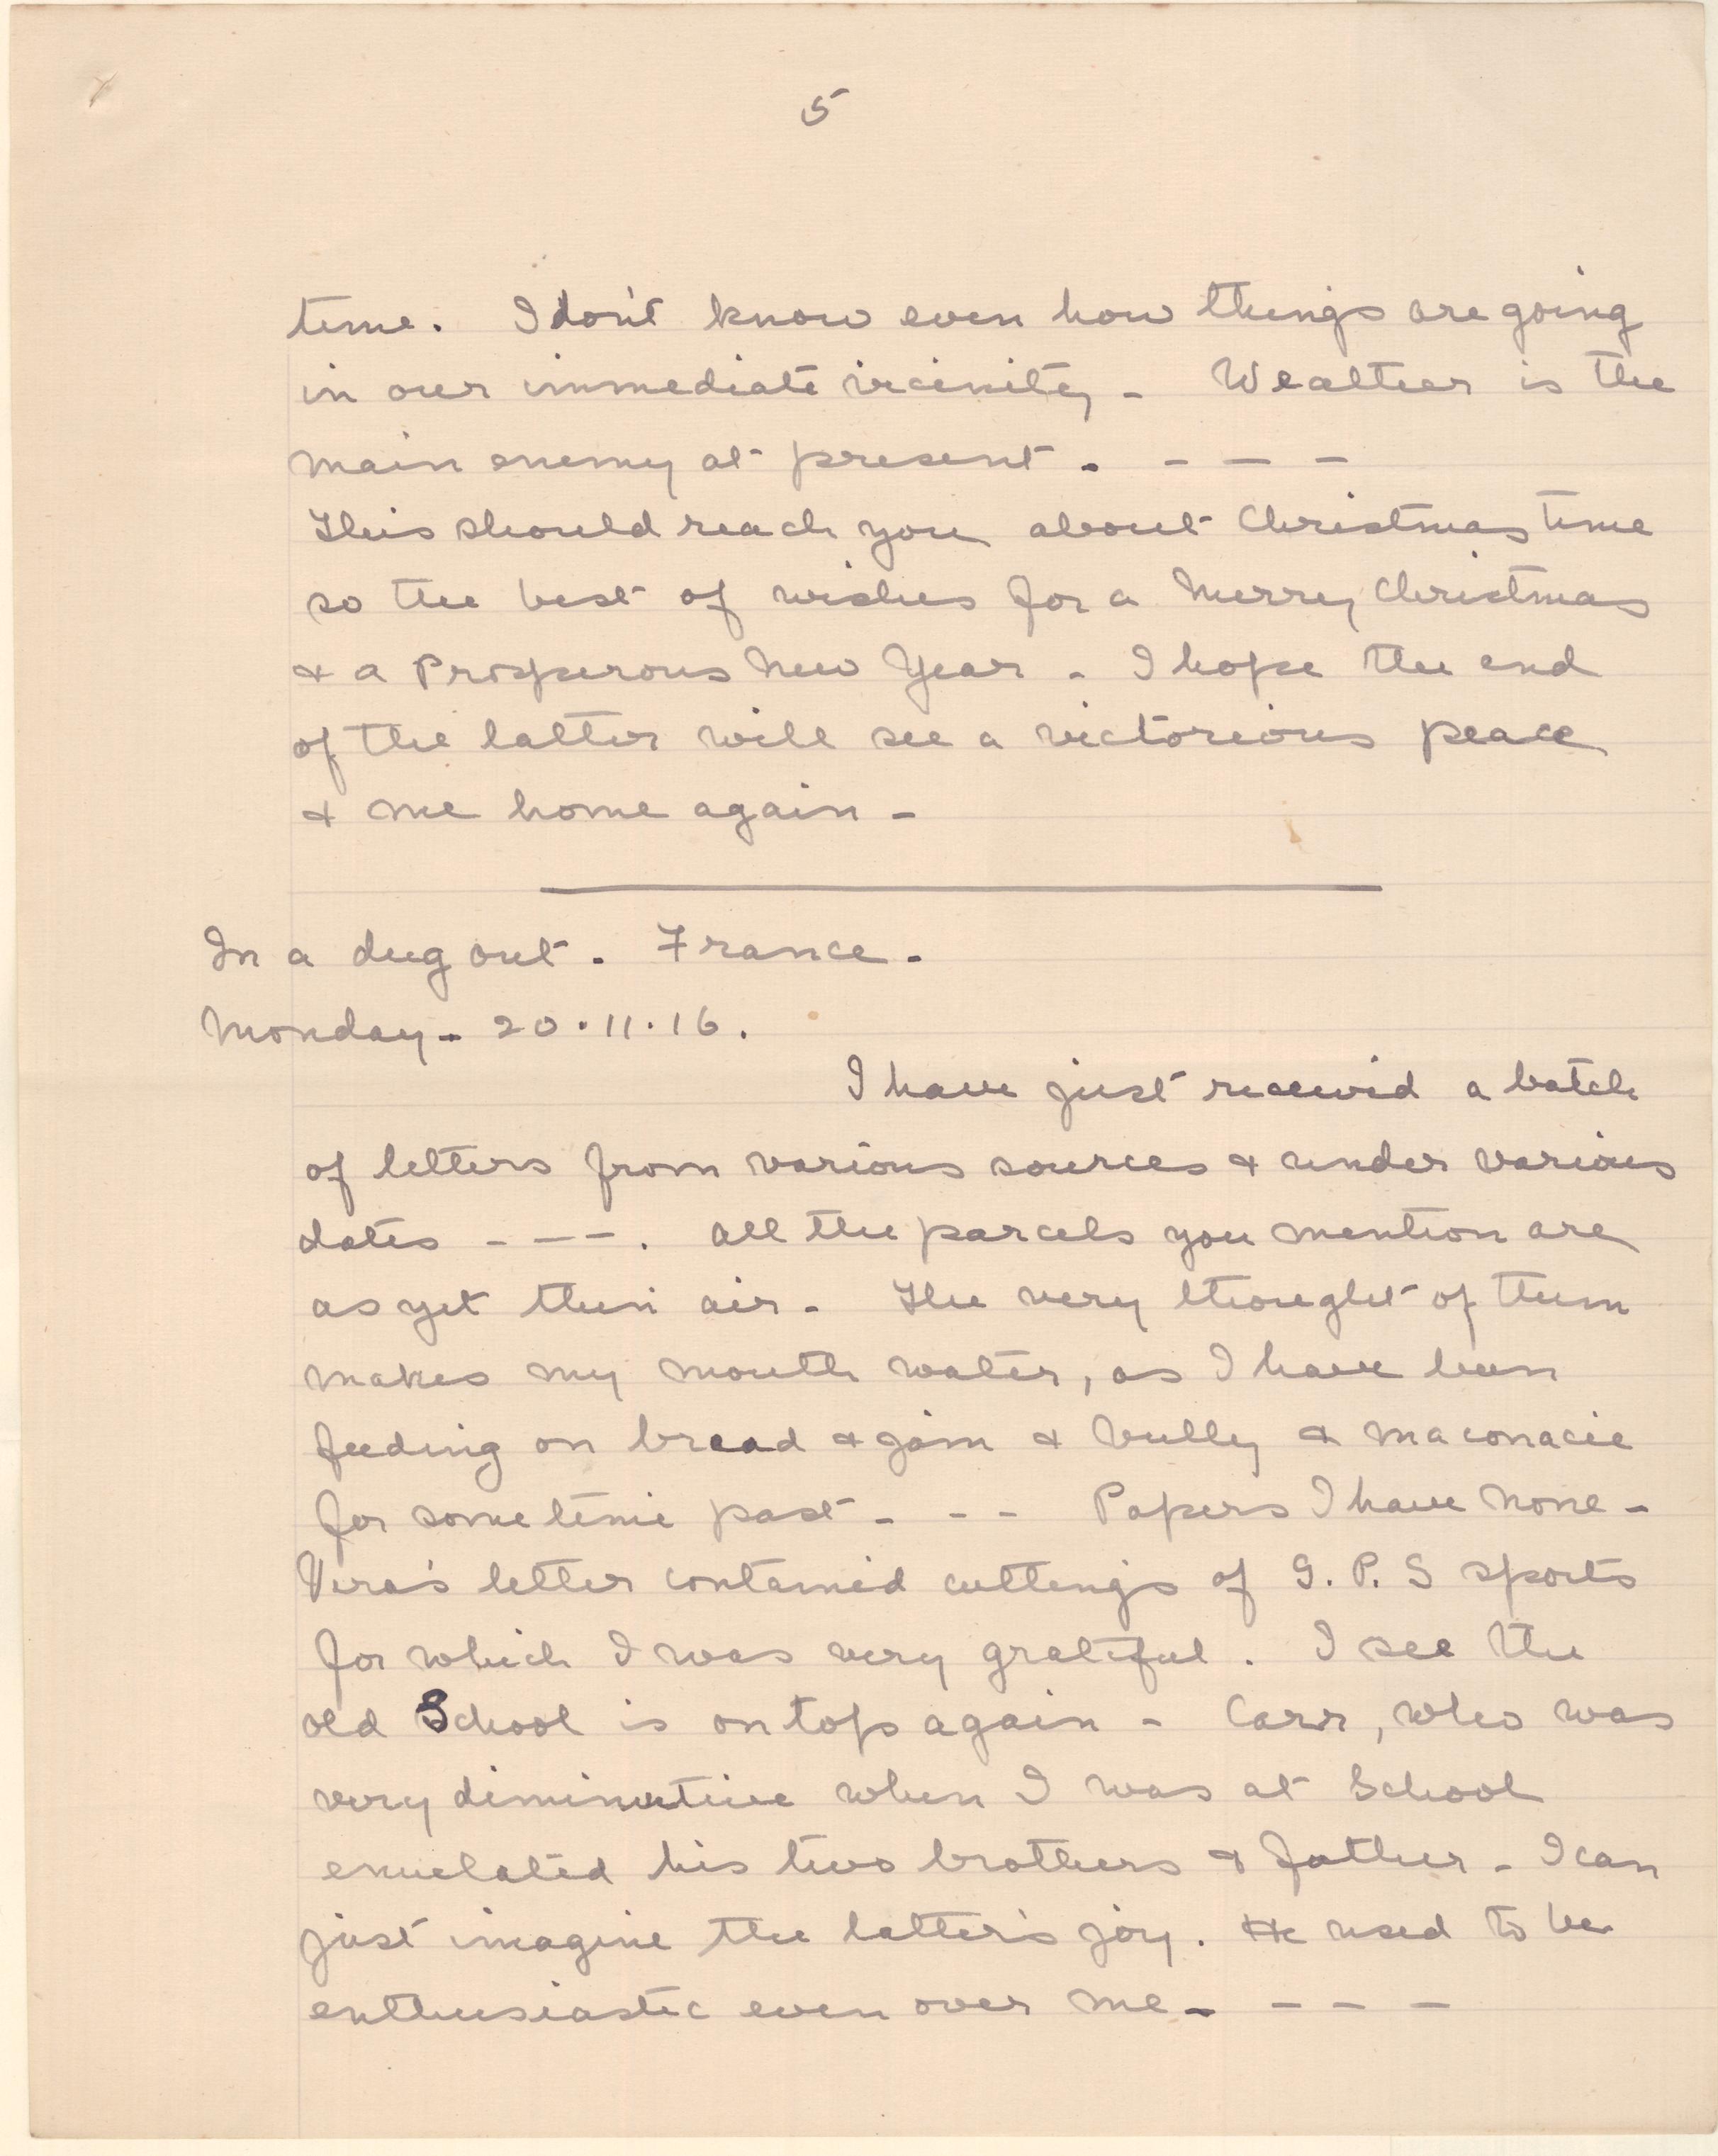 5
time. I don't know even how things are going
in our immediate vicinity - Weather is the
main enemy at present. - - -
This should reach you about Christmas time
so the best of wishes for a Merry Christmas
& a Prosperous New Year - I hope the end
of the latter will see a victorious peace
& me home again -
In a dug out. France.
Monday - 20.11.16.
I have just received a batch
of letters from various sources & under various
dates - - - . All the parcels you mention are
as yet thin air - The very thought of them
makes my mouth water, as I have been
feeding on bread & jam & bully & maconacie
for some time past - - - Papers I have none -
Vera's letter contained cuttings of G.P.S sports
for which I was very grateful. I see the
old School is on top again - Carr, who was
very diminutive when I was at School
emulated his two brothers & father - I can
just imagine the latter's joy. He used to be
enthusiastic even over me - - - -